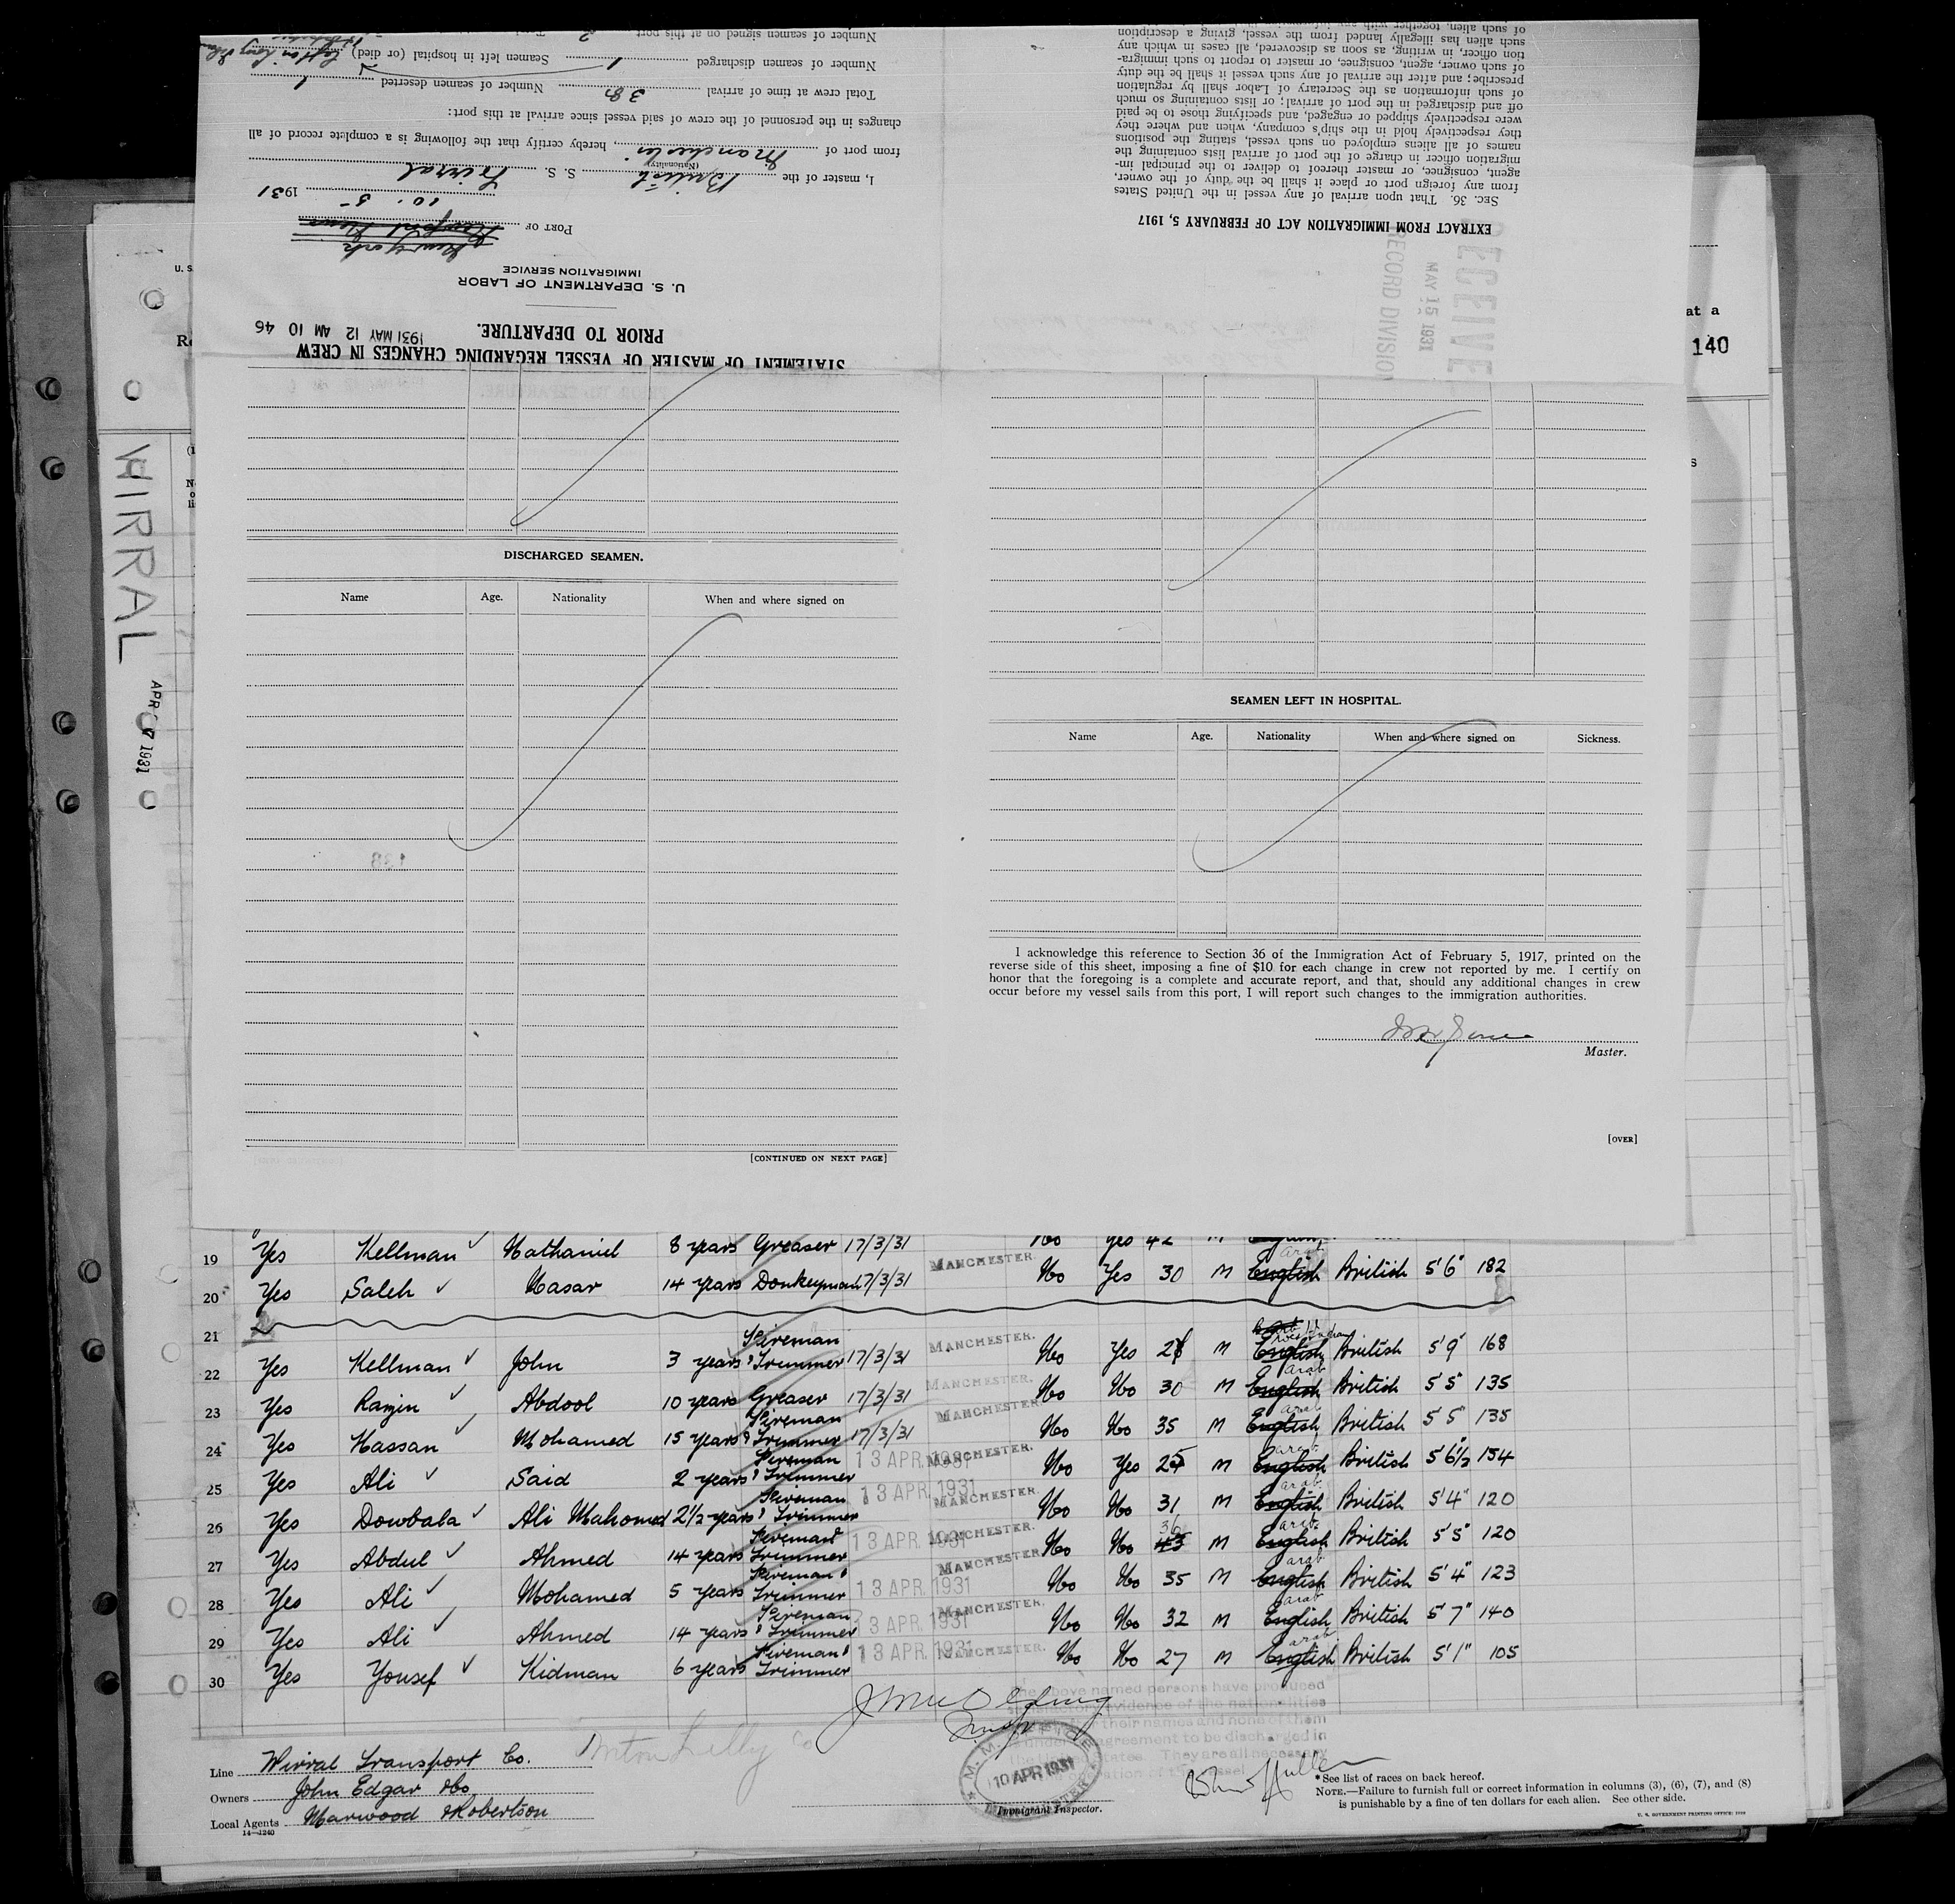 of such alien, together with any information
such alien has illegally landed from the vessel, giving a description
tion officer, in writing, as soon as discovered, all cases in which any
of such owner, agent, consignee, or master to report to such immigra-
prescribe; and after the arrival of any such vessel it shall be the duty
of such information as the Secretary of Labor shall by regulation
off and discharged in the port of arrival; or lists containing so much
were respectively shipped or engaged, and specifying those to be paid
they respectively hold in the ship's company, when and where they
names of all aliens employed on such vessel, stating the positions
migration officer in charge of the port of arrival lists containing the
agent, consignee, or master thereof to deliver to the principal im-
from any foreign port or place it shall be the duty of the owner,
SEC. 36. That upon arrival of any vessel in the United States
EXTRACT FROM IMMIGRATION ACT OF FEBRUARY 5, 1917
RECORD DIVISION
MAY 15 1931
Number of seamen signed on at this port 2
Number of seamen discharged 1 Seamen left in hospital (or died)
Total crew at time of arrival 38 Number of seamen deserted 1
changes in the personnel of the crew of said vessel since arrival at this port:
from port of Manchester, hereby certify that the following is a complete record of all
I, master of the British S. S. Wirral
(Nationality)
10 . 5 - 1931
PORT OF Newport News
New York
U. S. DEPARTMENT OF LABOR
IMMIGRATION SERVICE
PRIOR TO DEPARTURE. 1931 MAY 12 AM 10 46
STATEMENT OF MASTER OF VESSEL REGARDING CHANGES IN CREW
U. S.
at a
140
WIRRAL
APR 1931
DISCHARGED SEAMEN.
Name Age. Nationality When and where signed on
138
[CONTINUED ON NEXT PAGE]
SEAMEN LEFT IN HOSPITAL.
Name Age. Nationality When and where signed on Sickness.
I acknowledge this reference to Section 36 of the Immigration Act of February 5, 1917, printed on the
reverse side of this sheet, imposing a fine of $10 for each change in crew not reported by me. I certify on
honor that the foregoing is a complete and accurate report, and that, should any additional changes in crew
occur before my vessel sails from this port, I will report such changes to the immigration authorities.
Master.
[OVER]
19 Yes Kellman Nathaniel 8 years Greaser 17/3/31 MANCHESTER. No Yes 42 M
20 Yes Saleh Nasar 14 years Donkeyman 17/3/31 No Yes 30 M English Arab British 5'6" 182
21
22 Yes Kellman John 3 years Fireman & Trimmer 17/3/31 MANCHESTER. No Yes M English West Indian British 5'9" 168
23 Yes Ramjin Abdool 10 years Greaser 17/3/31 MANCHESTER. No No 30 M English Arab British 5'5" 135
24 Yes Hassan Mohamed 15 years Fireman & Trimmer 17/3/31 MANCHESTER. No No 35 M English Arab British 5'5" 135
25 Yes Ali Said 2 years Fireman & Trimmer 13 APR. 1931 MANCHESTER. No Yes 25 M English Arab British 5'6½ 154
26 Yes Dowbala Ali Mahomed 2½ years Fireman & Trimmer 13 APR. 1931 MANCHESTER. No No 31 M English Arab British 5'4" 120
27 Yes Abdul Ahmed 14 years Fireman & Trimmer 13 APR. 1931 MANCHESTER. No No 43 36 M English Arab British 5'5" 120
28 Yes Ali Mohamed 5 years Fireman & Trimmer 13 APR. 1931 MANCHESTER. No No 35 M English Arab British 5'4" 123
29 Yes Ali Ahmed 14 years Fireman & Trimmer 13 APR. 1931 MANCHESTER. No No 32 M English Arab British 5'7" 140
30 Yes Yousef Kidman 6 years Fireman & Trimmer 13 APR. 1931 MANCHESTER. No No 27 M English Arab British 5'1" 105
above named persons have produced
evidence of the nationalities
their names and none of them
under agreement to be discharged in
States. They are all necessary
10 APR 1931
Immigrant Inspector.
Line Wirral Transport Co.
Owners John Edgar & Co
Local Agents Marwood & Robertson
14—1240
*See list of races on back hereof.
NOTE.—Failure to furnish full or correct information in columns (3), (6), (7), and (8)
is punishable by a fine of ten dollars for each alien. See other side.
U. S. GOVERNMENT PRINTING OFFICE: